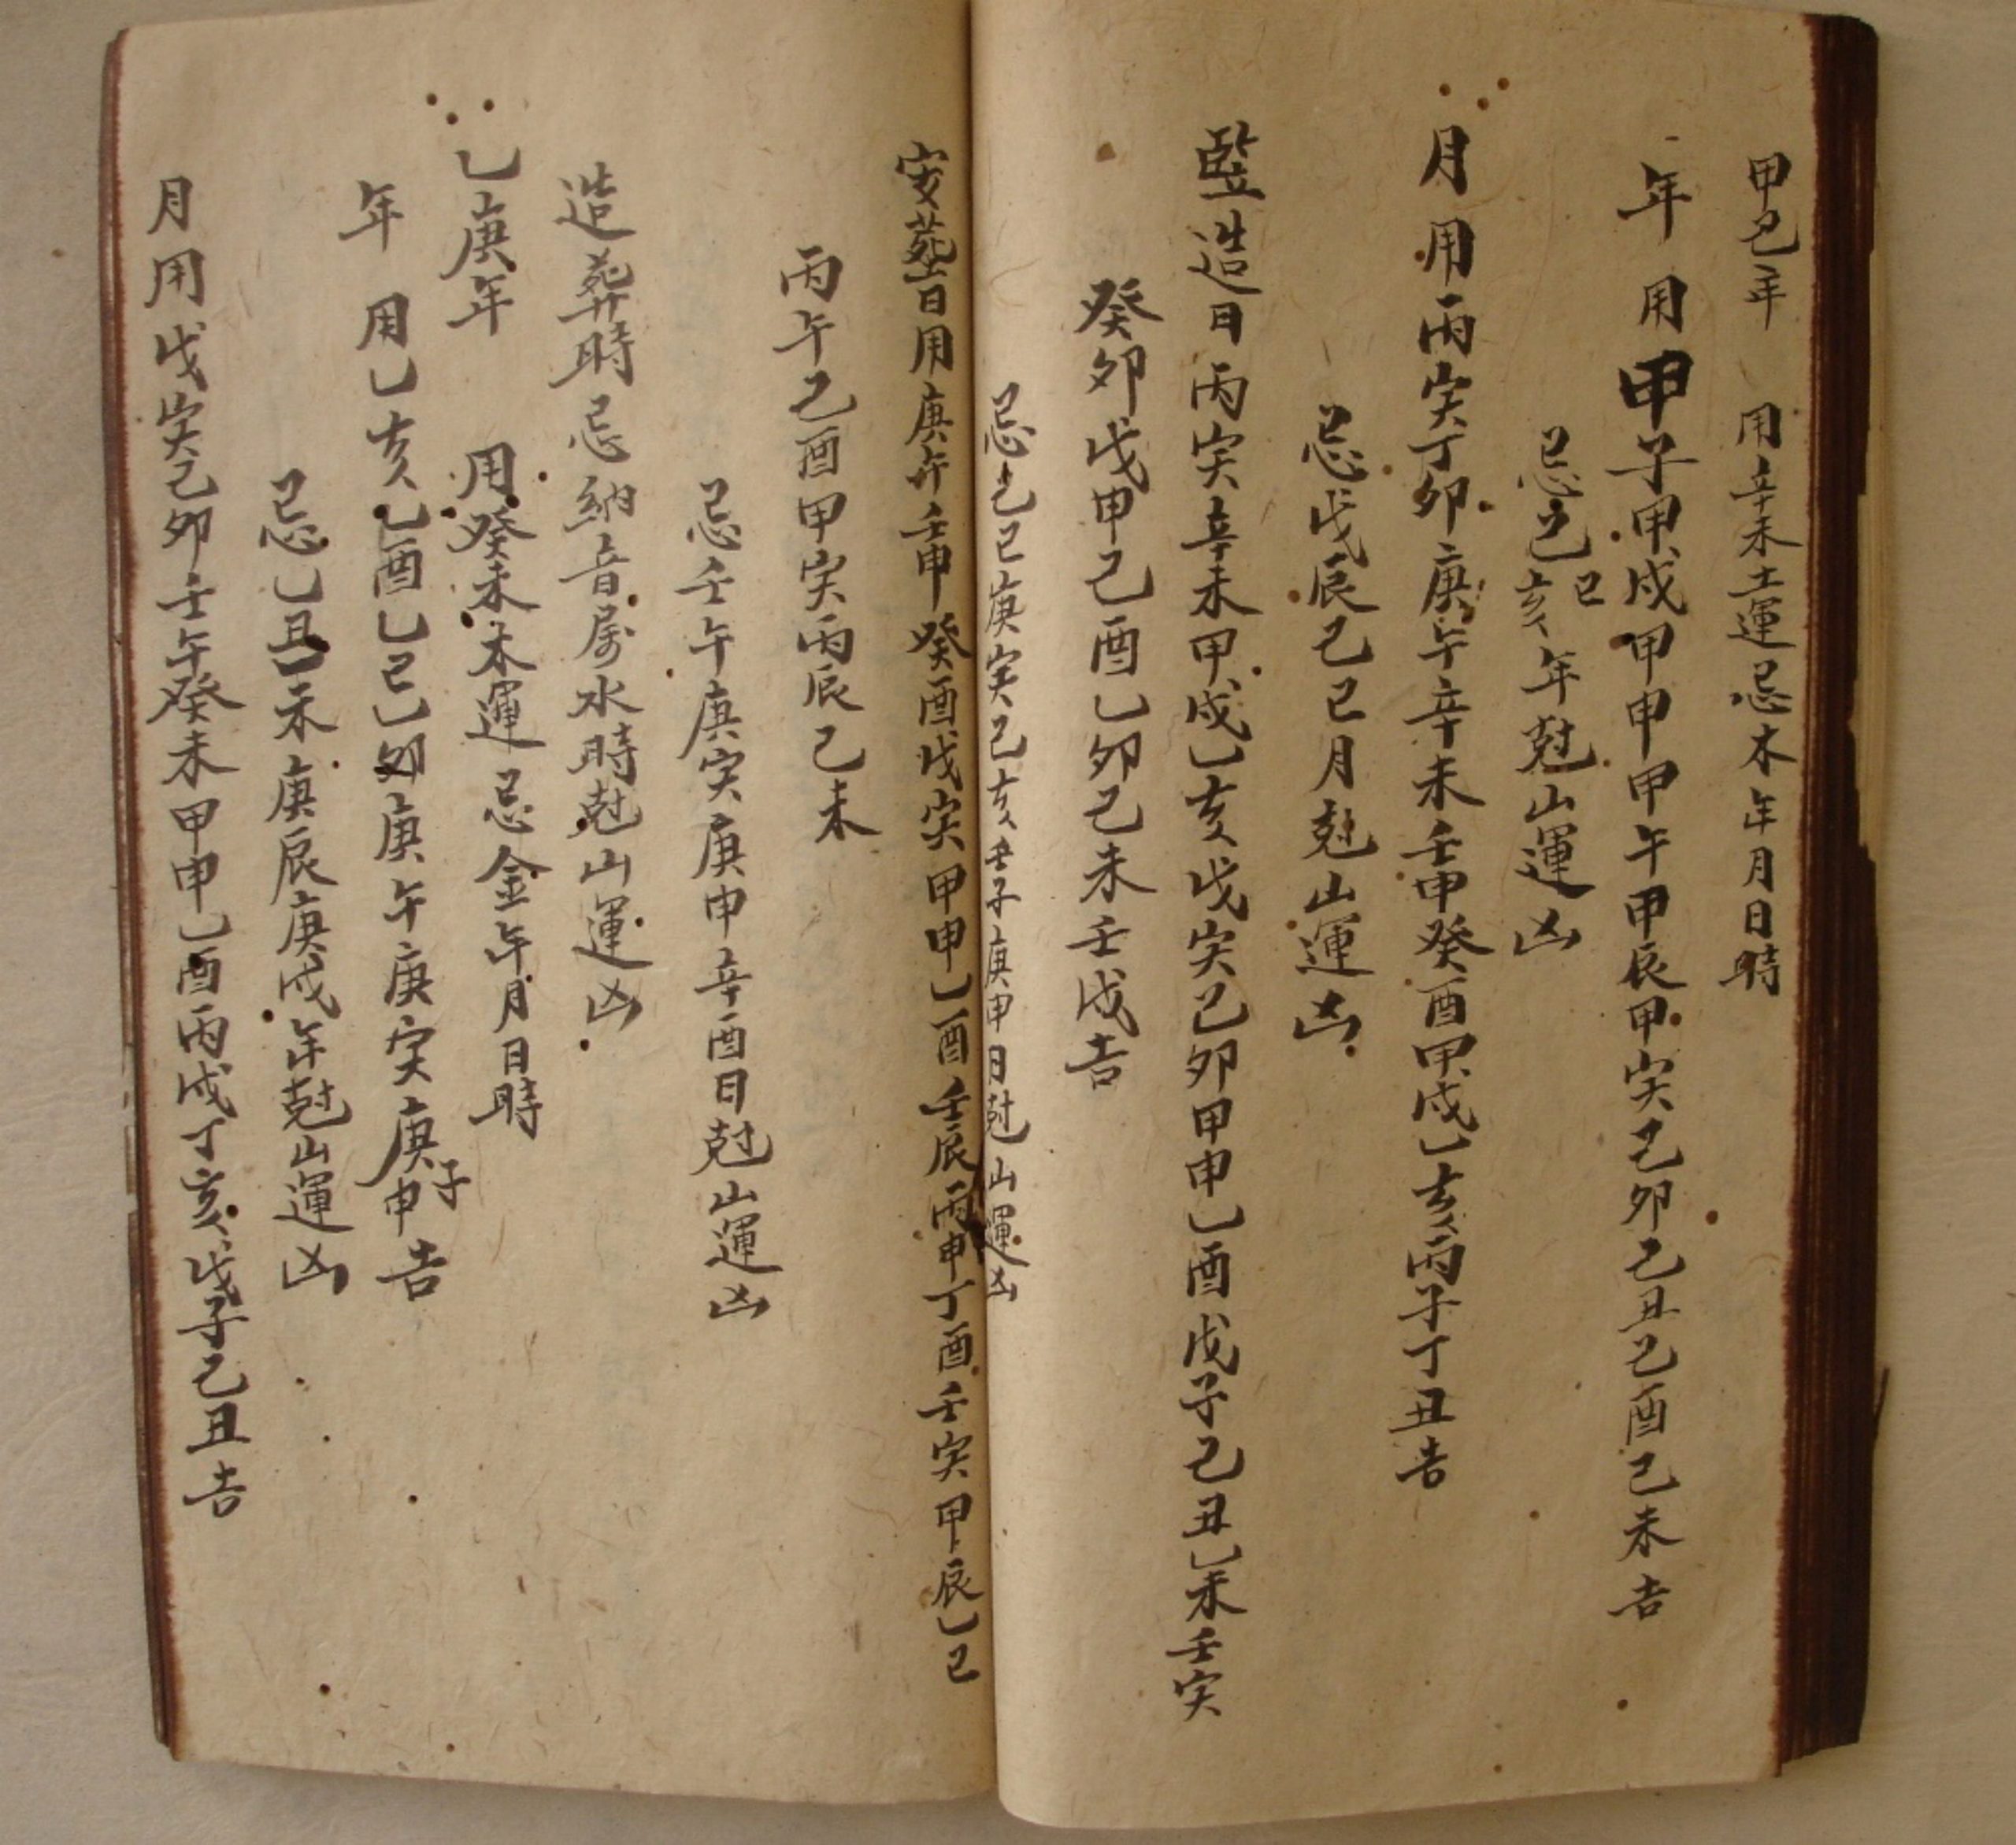 甲己年 用辛未土運忌木年月日時
年 用甲子甲戌甲申甲午甲辰甲寅己卯己丑己酉己未吉
忌己巳亥年尅山運凶
月 用丙寅丁卯庚午辛未壬申癸酉甲戌乙亥丙子丁丑吉
忌戊辰己巳月尅山運凶
竪造日丙寅辛未甲戌乙亥戊寅己卯甲申乙酉戊子己丑乙未壬寅
癸卯戊申己酉乙卯己未壬戌吉
忌己巳庚寅己亥壬子庚申日尅山運凶
安葬日用庚午壬申癸酉戊寅甲申乙酉壬辰丙申丁酉壬寅甲辰乙巳
丙午己酉甲寅丙辰己未
忌壬午庚寅庚申辛酉日尅山運凶
造葬時忌納音屬水時尅山運凶
乙庚年 用癸未木運忌金年月日時
年 用乙亥乙酉乙巳乙卯庚午庚寅庚子申吉
忌乙丑乙未庚辰庚戌年尅山運凶
月用戊寅己卯壬午癸未甲申乙酉丙戌丁亥戊子己丑吉